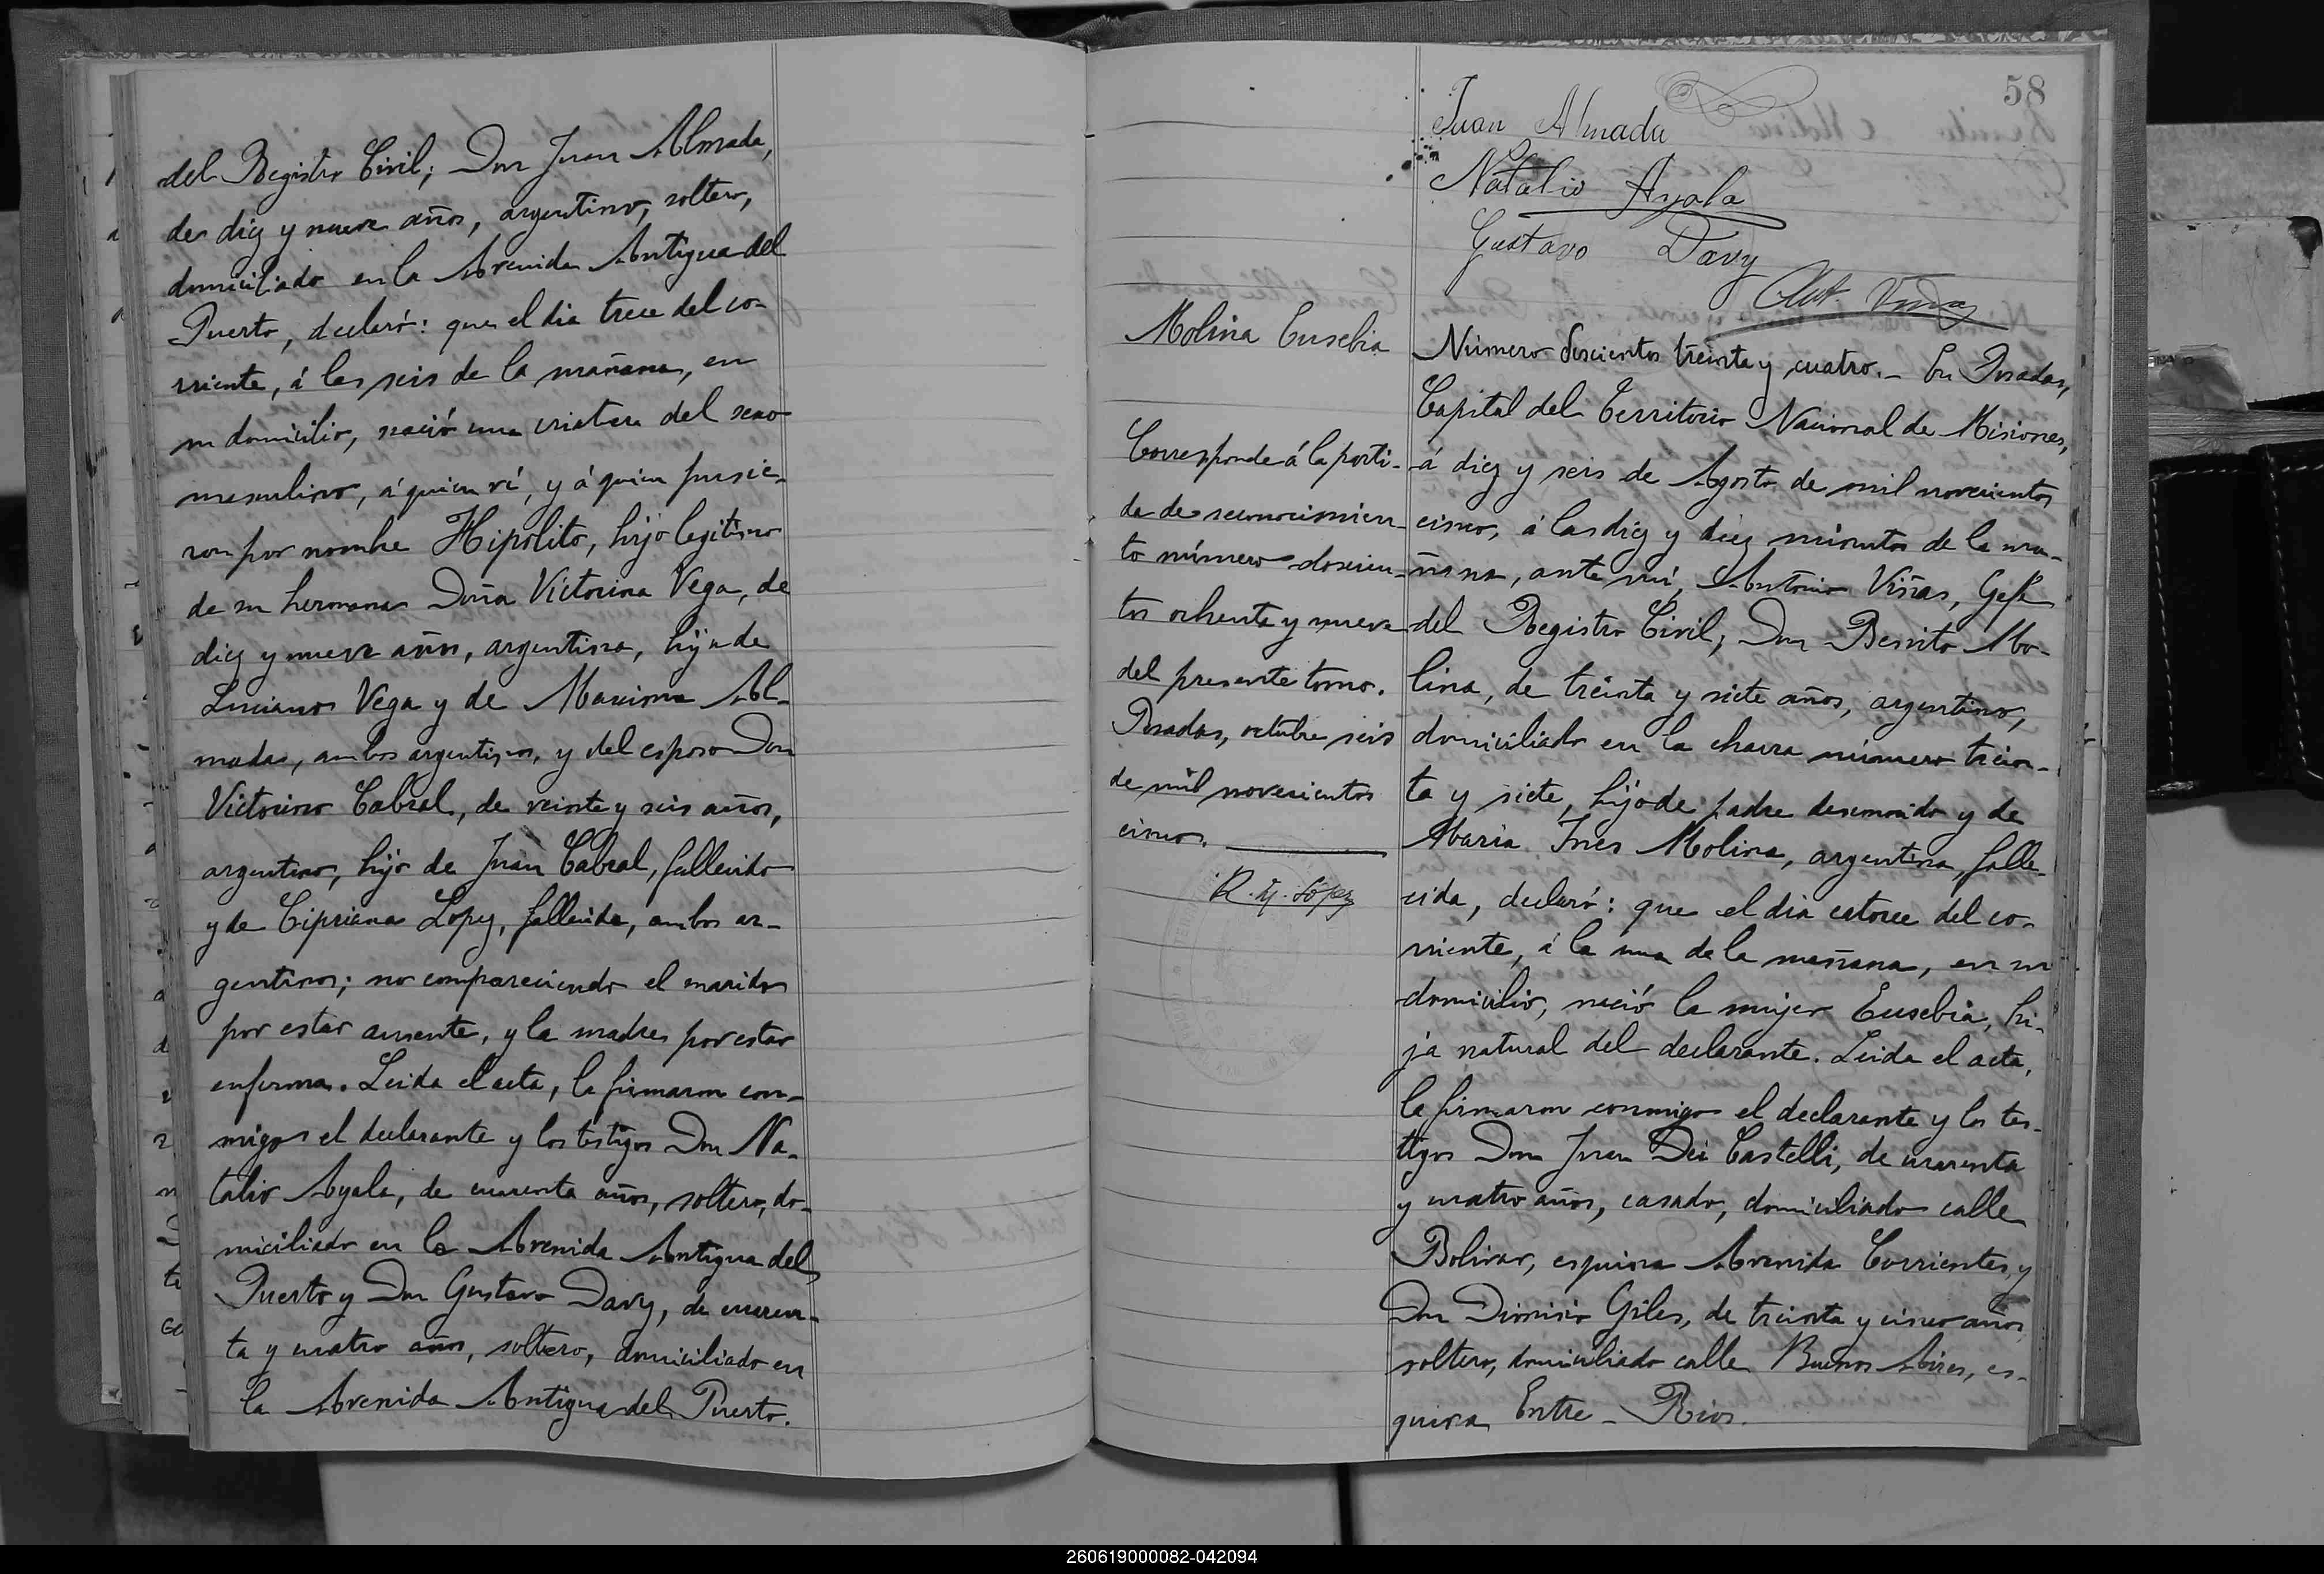 del Registro Civil; Don Juan Almada,
de diez y nueve años, argentino, soltero,
domiciliado en la Avenida Antigua del
Puerto, declaró: que el dia trece del co-
rriente, á las seis de la mañana, en
su domicilio, nació una criatura del sexo
masculino, á quien ví, y á quien pusie-
ron por nombre Hipólito, hijo legítimo
de su hermana Doña Victorina Vega, de
diez y nueve años, argentina, hija de
Luciano Vega y de Maxima Al-
mada, ambos argentinos, y del esposo Don
Victorino Cabral, de veinte y seis años,
argentino, hijo de Juan Cabral, fallecido
y de Cipriana Lopez, fallecida, ambos ar-
gentinos; no compareciendo el marido
por estar ausente, y la madre por estar
enferma. Leida el acta, la firmaron con-
migo el declarante y los testigos Don Na-
talio Ayala, de cuarenta años, soltero, do-
miciliado en la Avenida Antigua del
Puerto y Don Gustavo Davy, de cuaren-
ta y cuatro años, soltero, domiciliado en
la Avenida Antigua del Puerto.
58
Juan Almada
Natalio Ayala
Gustavo Davy
Ant. Viñas
Molina Eusebia
Corresponde á la parti-
da de reconocimien-
to número doscien-
tos ochenta y nueve
del presente tomo.
Posadas, octubre seis
de mil novecientos
cinco.
R. y. López
Número doscientos treinta y cuatro.- En Posadas,
Capital del Territorio Nacional de Misiones,
á diez y seis de Agosto de mil novecientos
cinco, á las diez y diez minutos de la ma-
ñana, ante mí, Antonio Viñas, Gefe
del Registro Civil; Don Benito Mo-
lina, de treinta y siete años, argentino,
domiciliado en la chacra número trein-
ta y siete, hijo de padre desconocido y de
Maria Ines Molina, argentina, falle-
cida, declaró: que el dia catorce del co-
rriente, á la una de la mañana, en su
domicilio, nació la mujer Eusebia, hi-
ja natural del declarante. Leida el acta,
la firmaron conmigo el declarante y los tes-
tigos Don Juan Dei Castelli, de cuarenta
y cuatro años, casado, domiciliado calle
Bolivar, esquina Avenida Corrientes, y
Don Dionisio Giles, de treinta y cinco años
soltero, domiciliado calle Buenos Aires, es-
quina Entre-Rios.
260619000082-042094